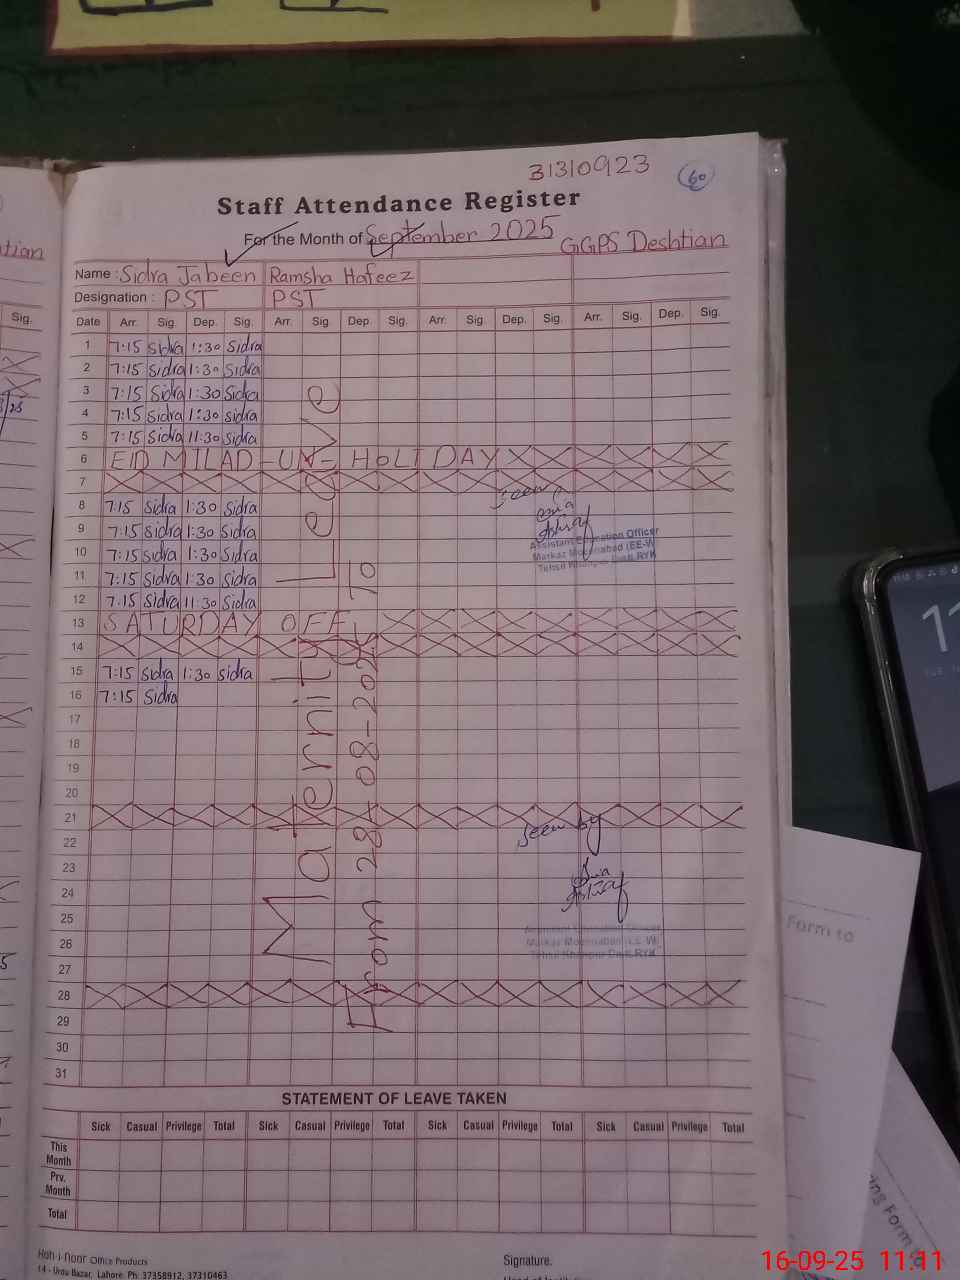 31310923
60
Staff Attendance Register
For the Month of September 2025
GGPS Deshtian
Name : Sidra Jabeen Ramsha Hafeez
Designation : PST PST
Date Arr. Sig. Dep. Sig. Arr. Sig. Dep. Sig. Arr. Sig. Dep. Sig. Arr. Sig. Dep. Sig.
1 7:15 Sidra 1:30 Sidra
2 7:15 Sidra 1:30 Sidra
3 7:15 Sidra 1:30 Sidra
4 7:15 Sidra 1:30 Sidra
5 7:15 Sidra 11:30 Sidra
6 EID MILAD-UN- HOLIDAY
7
8 7:15 Sidra 1:30 Sidra
9 7:15 Sidra 1:30 Sidra
10 7:15 Sidra 1:30 Sidra
11 7:15 Sidra 1:30 Sidra
12 7:15 Sidra 11:30 Sidra
13 SATURDAY OFF
14
15 7:15 Sidra 1:30 Sidra
16 7:15 Sidra
17
18
19
20
21
22
23
24
25
26
27
28
29
30
31
Maternity Leave
From 28-08-2025 To
Seen
Assistant Education Officer
Seen by
STATEMENT OF LEAVE TAKEN
Sick Casual Privilege Total Sick Casual Privilege Total Sick Casual Privilege Total Sick Casual Privilege Total
This Month
Prv. Month
Total
Koh-i-Noor Office Products
14 - Urdu Bazar, Lahore. Ph: 37358912, 37310463
Signature.
tian
Sig.
Form to
ing Form
16-09-25 11:11